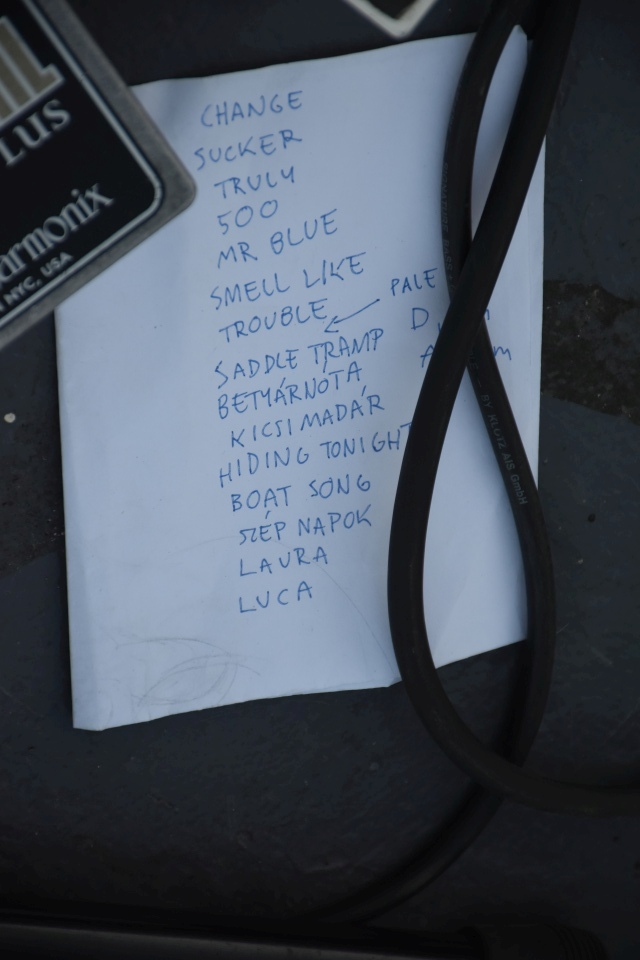 LUS
armonix
NYC, USA
CHANGE
SUCKER
TRULY
500
MR BLUE
SMELL LIKE
TROUBLE
PALE
SADDLE TRAMP
BETYÁRNÓTA
KICSI MADÁR
HIDING TONIGHT
BOAT SONG
SZÉP NAPOK
LAURA
LUCA
BY KLOTZ AIS GmbH